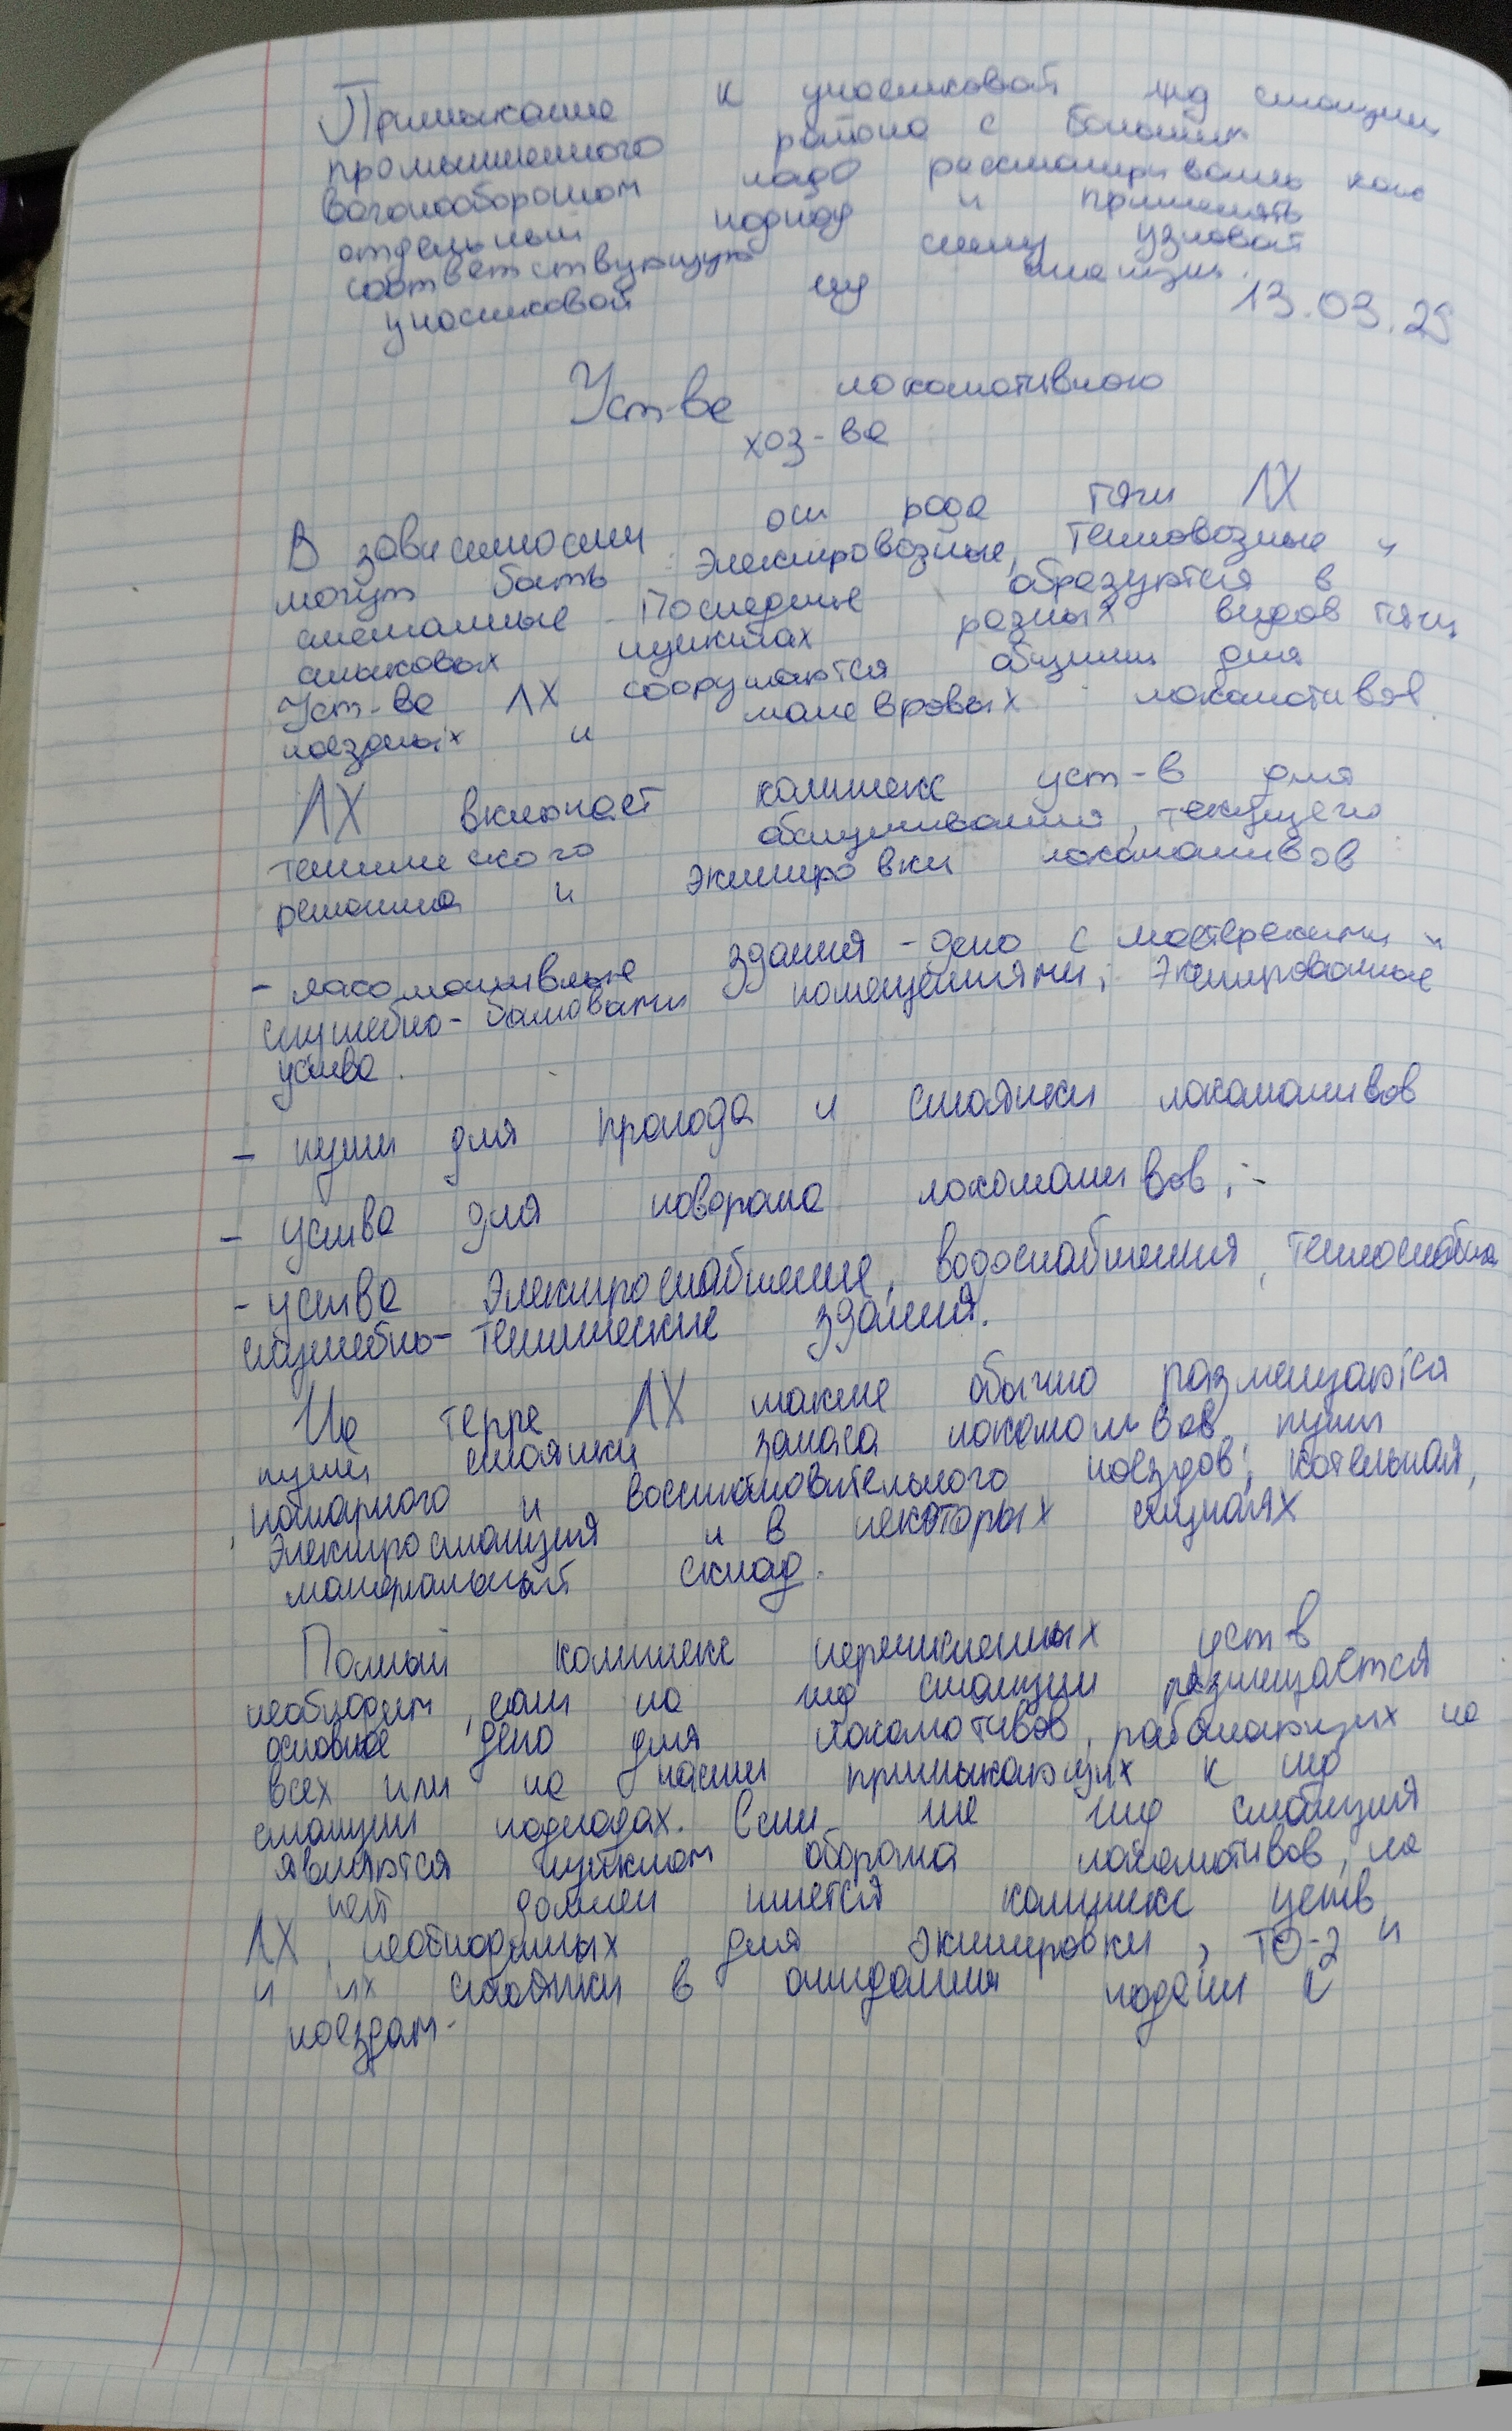 Примыкание к участковой жд станции
промышленного района с большим
вагонооборотом надо рассматривать как
отдельный подход и применять
соответствующую схему узловой
участковой жд станции.
13.03.25
Уст-ва локомотивного
хоз-ва
В зависимости от рода тяги ЛХ
могут быть: Электровозные, тепловозные и
смешанные. Последние образуются в
стыковых пунктах разных видов тяги
Уст-ва ЛХ сооружаются общими для
поездных и маневровых локомотивов.
ЛХ включает комплекс уст-в для
технического обслуживания, текущего
ремонта и экипировки локомотивов
- локомотивные здания - депо с мастерскими и
служебно-бытовыми помещениями; Экипировочные
уства.
- пути для прохода и стоянки локомотивов
- уства для поворота локомотивов; -
- уства Электроснабжение, водоснабжения, теплоснабже
служебно-технические здания.
На терре ЛХ также обычно размещаются
пути стоянки запаса локомотивов пути
пожарного и восстановительного поездов; котельная,
Электростанция и в некоторых случаях
материальный склад.
Полный комплекс перечисленных уств
необходим, если на жд станции размещается
основное депо для локомотивов, работающих на
всех или на части примыкающих к жд
станции подходах. Если же жд станция
являются пунктом оборота локомотивов, на
ней должен имется комплекс уств
ЛХ, необходимых для экипировки, ТО-2 и
и их стоянки в ожидания подачи к
поездам.